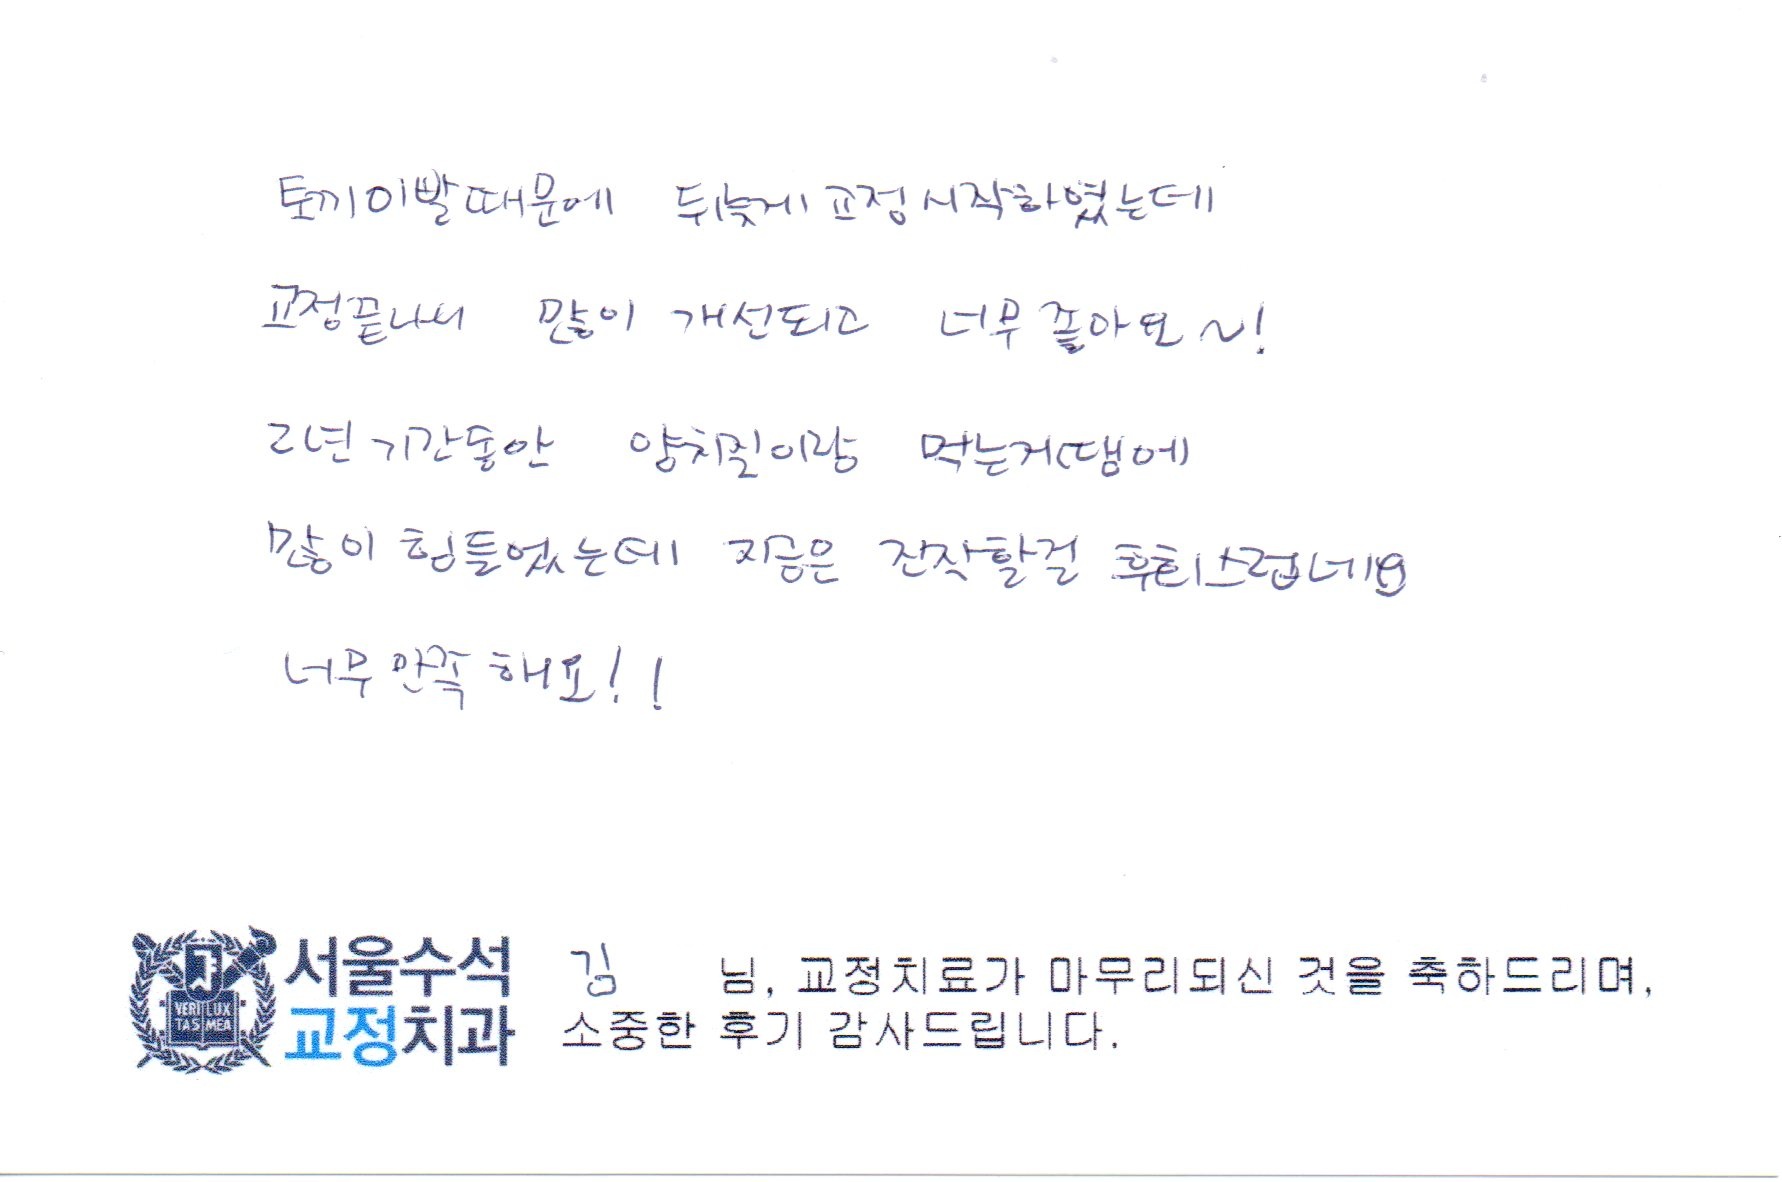 토끼이빨때문에 뒤늦게 교정시작하였는데
교정끝나서 많이 개선되고 너무 좋아요~!
2년 기간동안 양치질이랑 먹는거땜에
많이 힘들었는데 지금은 진작할걸 후회스럽네요
너무 만족해요!!
서울수석
교정치과
VERI LUX
TAS MEA
김 님, 교정치료가 마무리되신 것을 축하드리며,
소중한 후기 감사드립니다.